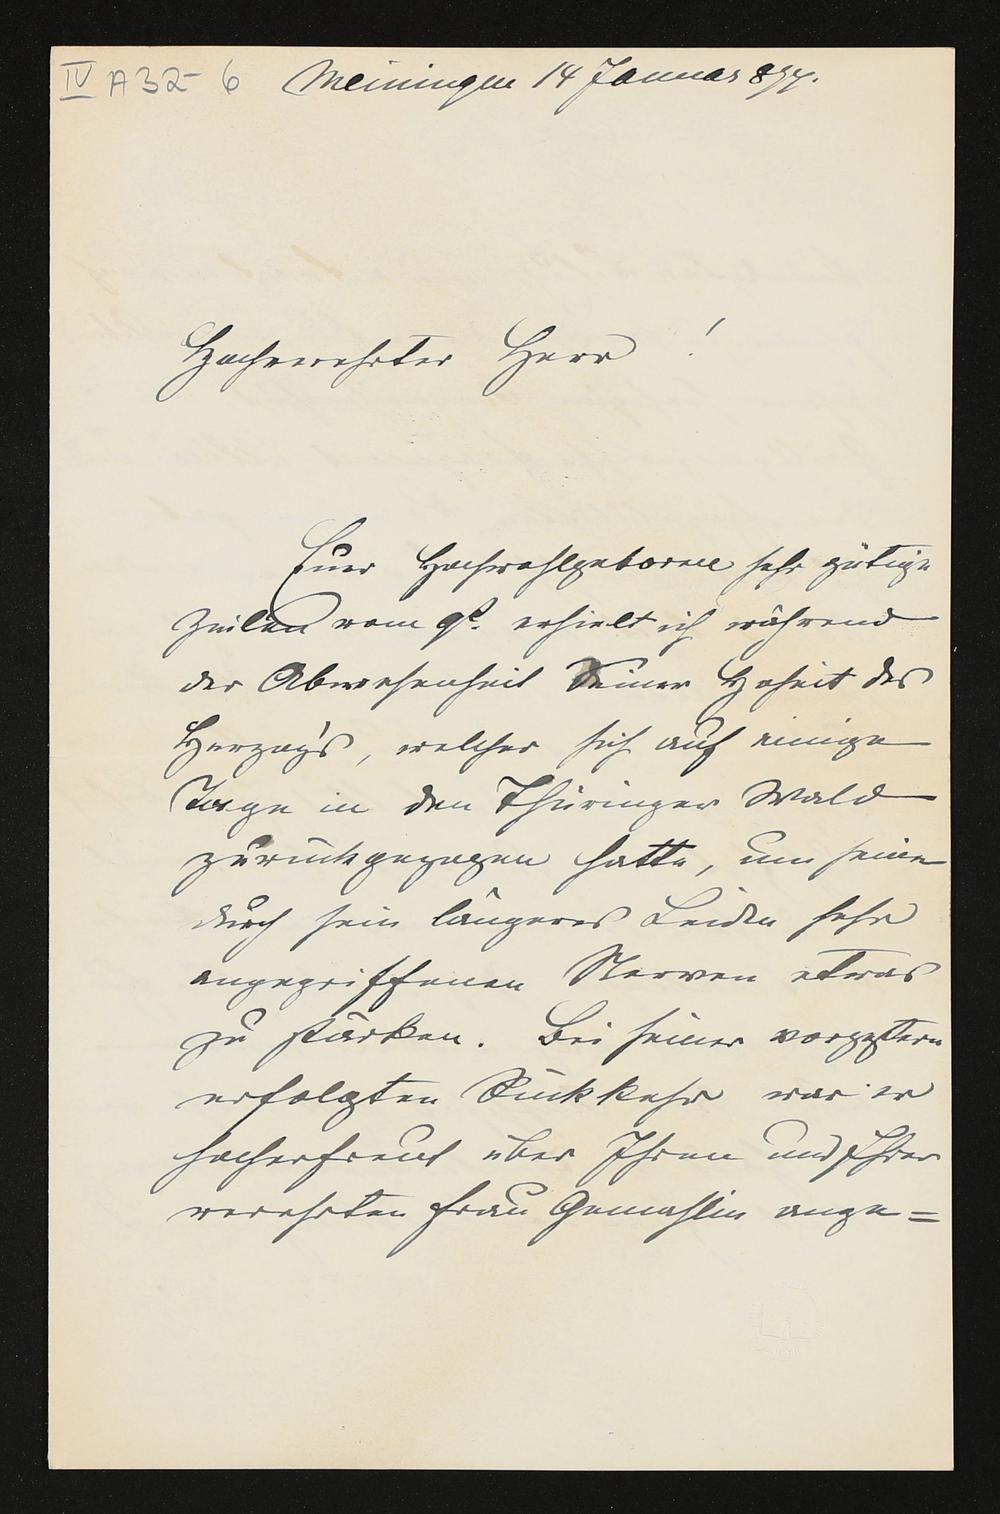 IV A 32-6 Meiningen 14 Januar 874.
Hochverehrter Herr !
Euer Hochwohlgeboren sehr gütige
Zeilen vom 9t. erhielt ich während
der Abwesenheit Seiner Hoheit des
Herzogs, welcher sich auf einige
Tage in den Thüringer Wald
zurückgezogen hatte, um seine
durch sein längeres Leiden sehr
angegriffenen Nerven etwas
zu stärken. Bei seiner vorgestern
erfolgten Rückkehr war er
hocherfreut über Ihren und Ihrer
verehrten Frau Gemahlin ange=